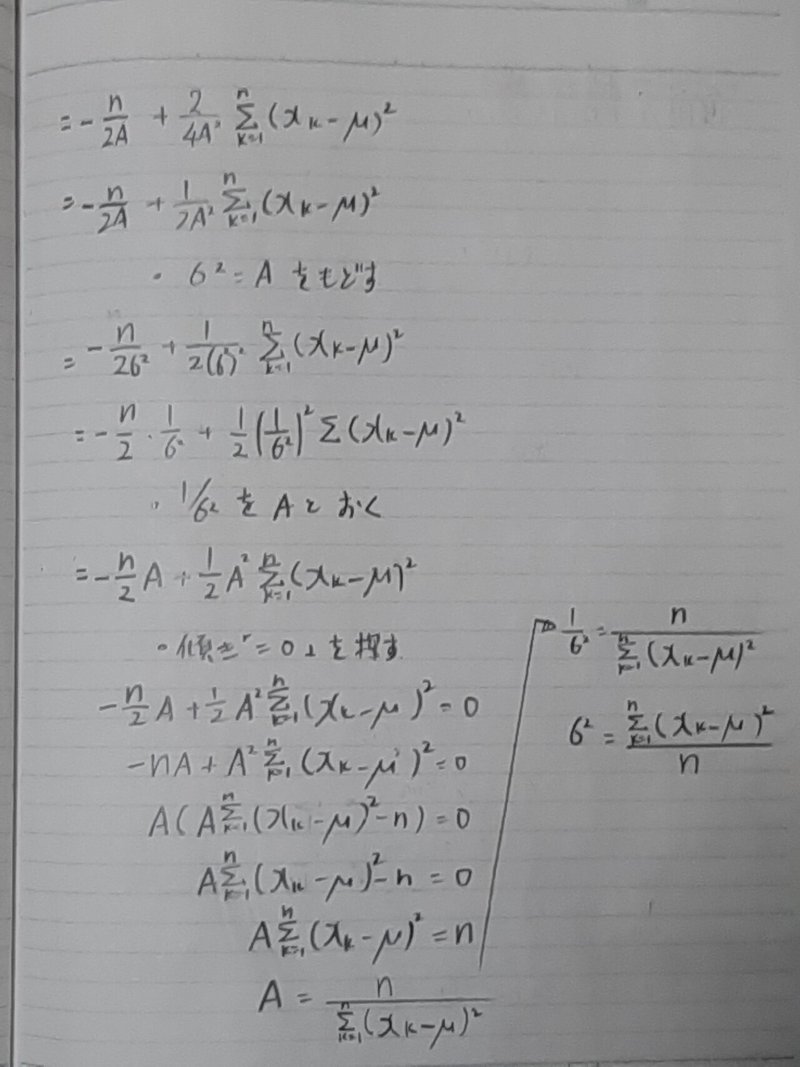 = - n/2A + 2/4A² Σ_{k=1}^{n} (x_k - μ)²
= - n/2A + 1/2A² Σ_{k=1}^{n} (x_k - μ)²
・ σ² = A をもどす
= - n/2σ² + 1/2(σ²)² Σ_{k=1}^{n} (x_k - μ)²
= - n/2 · 1/σ² + 1/2 (1/σ²)² Σ (x_k - μ)²
・ 1/σ² を A とおく
= - n/2 A + 1/2 A² Σ_{k=1}^{n} (x_k - μ)²
・傾き = 0 を探す
- n/2 A + 1/2 A² Σ_{k=1}^{n} (x_k - μ)² = 0
- nA + A² Σ_{k=1}^{n} (x_k - μ)² = 0
A ( A Σ_{k=1}^{n} (x_k - μ)² - n ) = 0
A Σ_{k=1}^{n} (x_k - μ)² - n = 0
A Σ_{k=1}^{n} (x_k - μ)² = n
A = n / Σ_{k=1}^{n} (x_k - μ)²
1/σ² = n / Σ_{k=1}^{n} (x_k - μ)²
σ² = Σ_{k=1}^{n} (x_k - μ)² / n